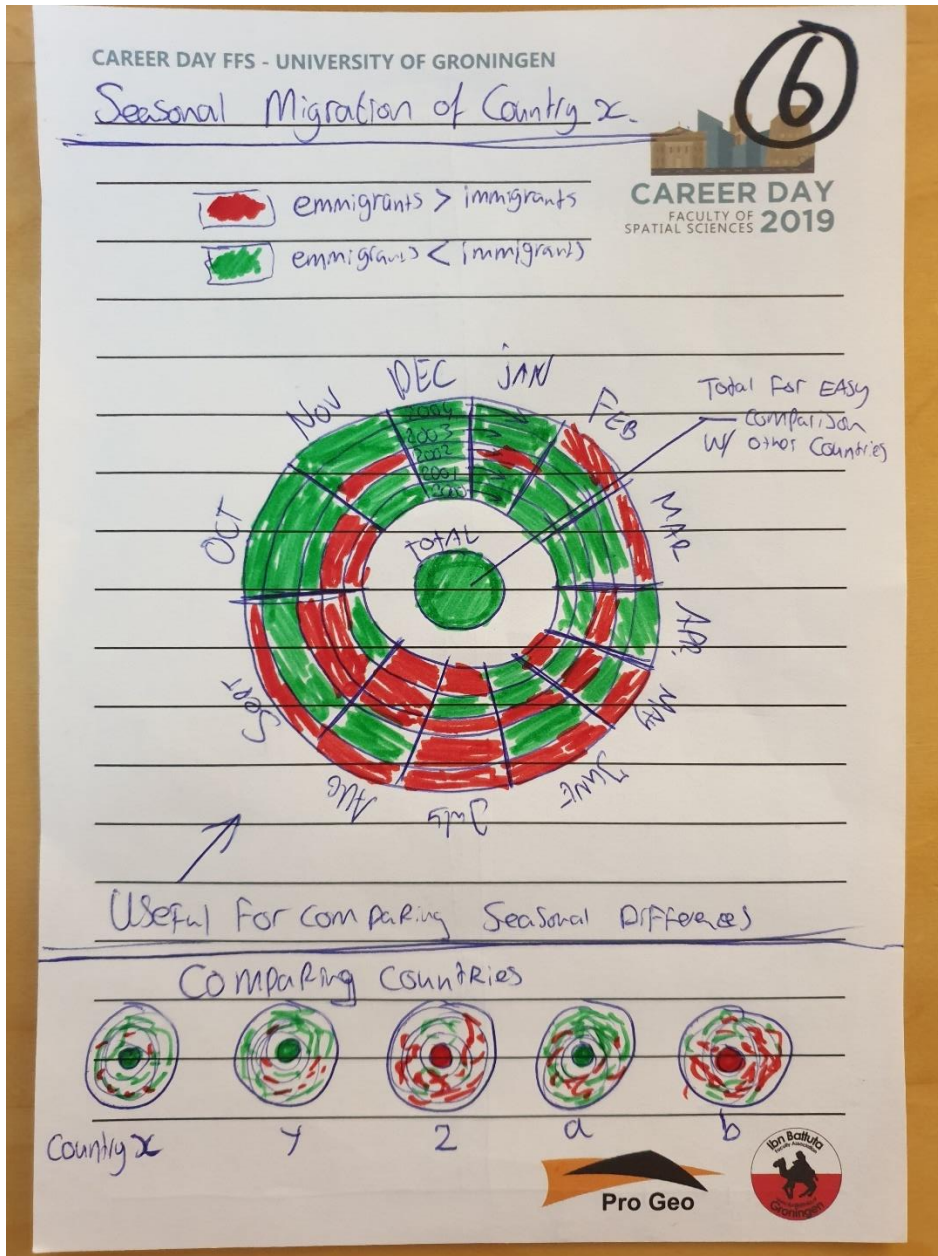 CAREER DAY FFS - UNIVERSITY OF GRONINGEN
6
Seasonal Migration of Country x.
CAREER DAY
FACULTY OF
SPATIAL SCIENCES 2019
emmigrants > immigrants
emmigrants < immigrants
DEC
JAN
NOV
FEB
Total For EASy
comparison
w/ other Countries
2004
2003
2002
2001
2000
OCT
MAR
TOTAL
APR.
SEPT
MAY
AUG
JUNE
July
USeful For comPaRing Seasonal Differences
ComPaRing Countries
Country x
y
z
a
b
Pro Geo
Ibn Battuta
Faculty Association
Groningen